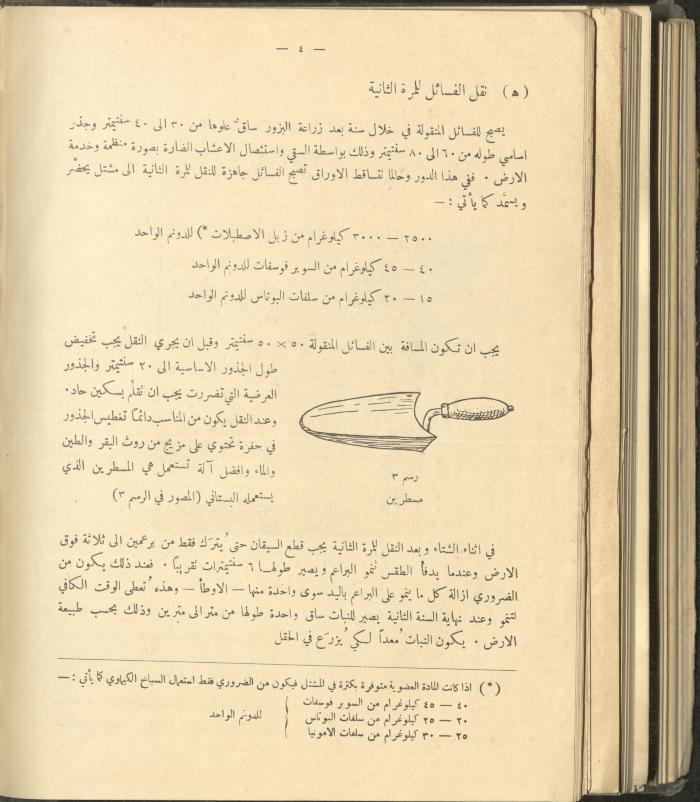 — ٤ —
(ه) نقل الفسائل للمرة الثانية
يصبح للفسائل المنقولة في خلال سنة بعد زراعة البزور ساقٌ علوها من ٣٠ الى ٤٠ سنتيمتر وجذر
اساسي طوله من ٦٠ الى ٨٠ سنتيمتر وذلك بواسطة السقي واستئصال الاعشاب الضارة بصورة منظمة وخدمة
الارض ٠ ففي هذا الدور وحالما تتساقط الاوراق تصبح الفسائل جاهزة للنقل للمرة الثانية الى مشتل يحضَّر
ويسمَّد كما يأتي : —
٢٥٠٠ — ٣٠٠٠ كيلوغرام من زبل الاصطبلات *) للدونم الواحد
٤٠ — ٤٥ كيلوغرام من السوبر فوسفات للدونم الواحد
١٥ — ٢٠ كيلوغرام من سلفات البوتاس للدونم الواحد
يجب ان تكون المسافة بين الفسائل المنقولة ٥٠ × ٥٠ سنتيمتر وقبل ان يجري النقل يجب تخفيض
طول الجذور الاساسية الى ٢٠ سنتيمتر والجذور
العرضية التي تضررت يجب ان تقلَّم بسكين حاد٠
وعند النقل يكون من المناسب دائمًا تغطيس الجذور
في حفرة تحتوي على مزيج من روث البقر والطين
والماء وافضل آلة تستعمل هي المسطرين الذي
يستعمله البستاني (المصور في الرسم ٣)
رسم ٣
مسطرين
في اثناء الشتاء وبعد النقل للمرة الثانية يجب قطع السيقان حتى يُترَك فقط من برعمين الى ثلاثة فوق
الارض وعندما يدفأ الطقس تنمو البراعم ويصير طولها ٦ سنتيمترات تقريبًا ٠ فعند ذلك يكون من
الضروري ازالة كل ما ينمو على البراعم باليد سوى واحدة منها — الاوطأ — وهذه تُعطى الوقت الكافي
لتنمو وعند نهاية السنة الثانية يصير للنبات ساق واحدة طولها من متر الى مترين وذلك بحسب طبيعة
الارض ٠ يكون النبات مُعداً لكي يُزرَع في الحقل
(*) اذا كانت المادة العضوية متوفرة بكثرة في المشتل فيكون من الضروري فقط استعمال السباخ الكيماوي كما يأتي : —
٤٠ — ٤٥ كيلوغرام من السوبر فوسفات
٢٠ — ٢٥ كيلوغرام من سلفات البوتاس
للدونم الواحد
٢٥ — ٣٠ كيلوغرام من سلفات الامونيا